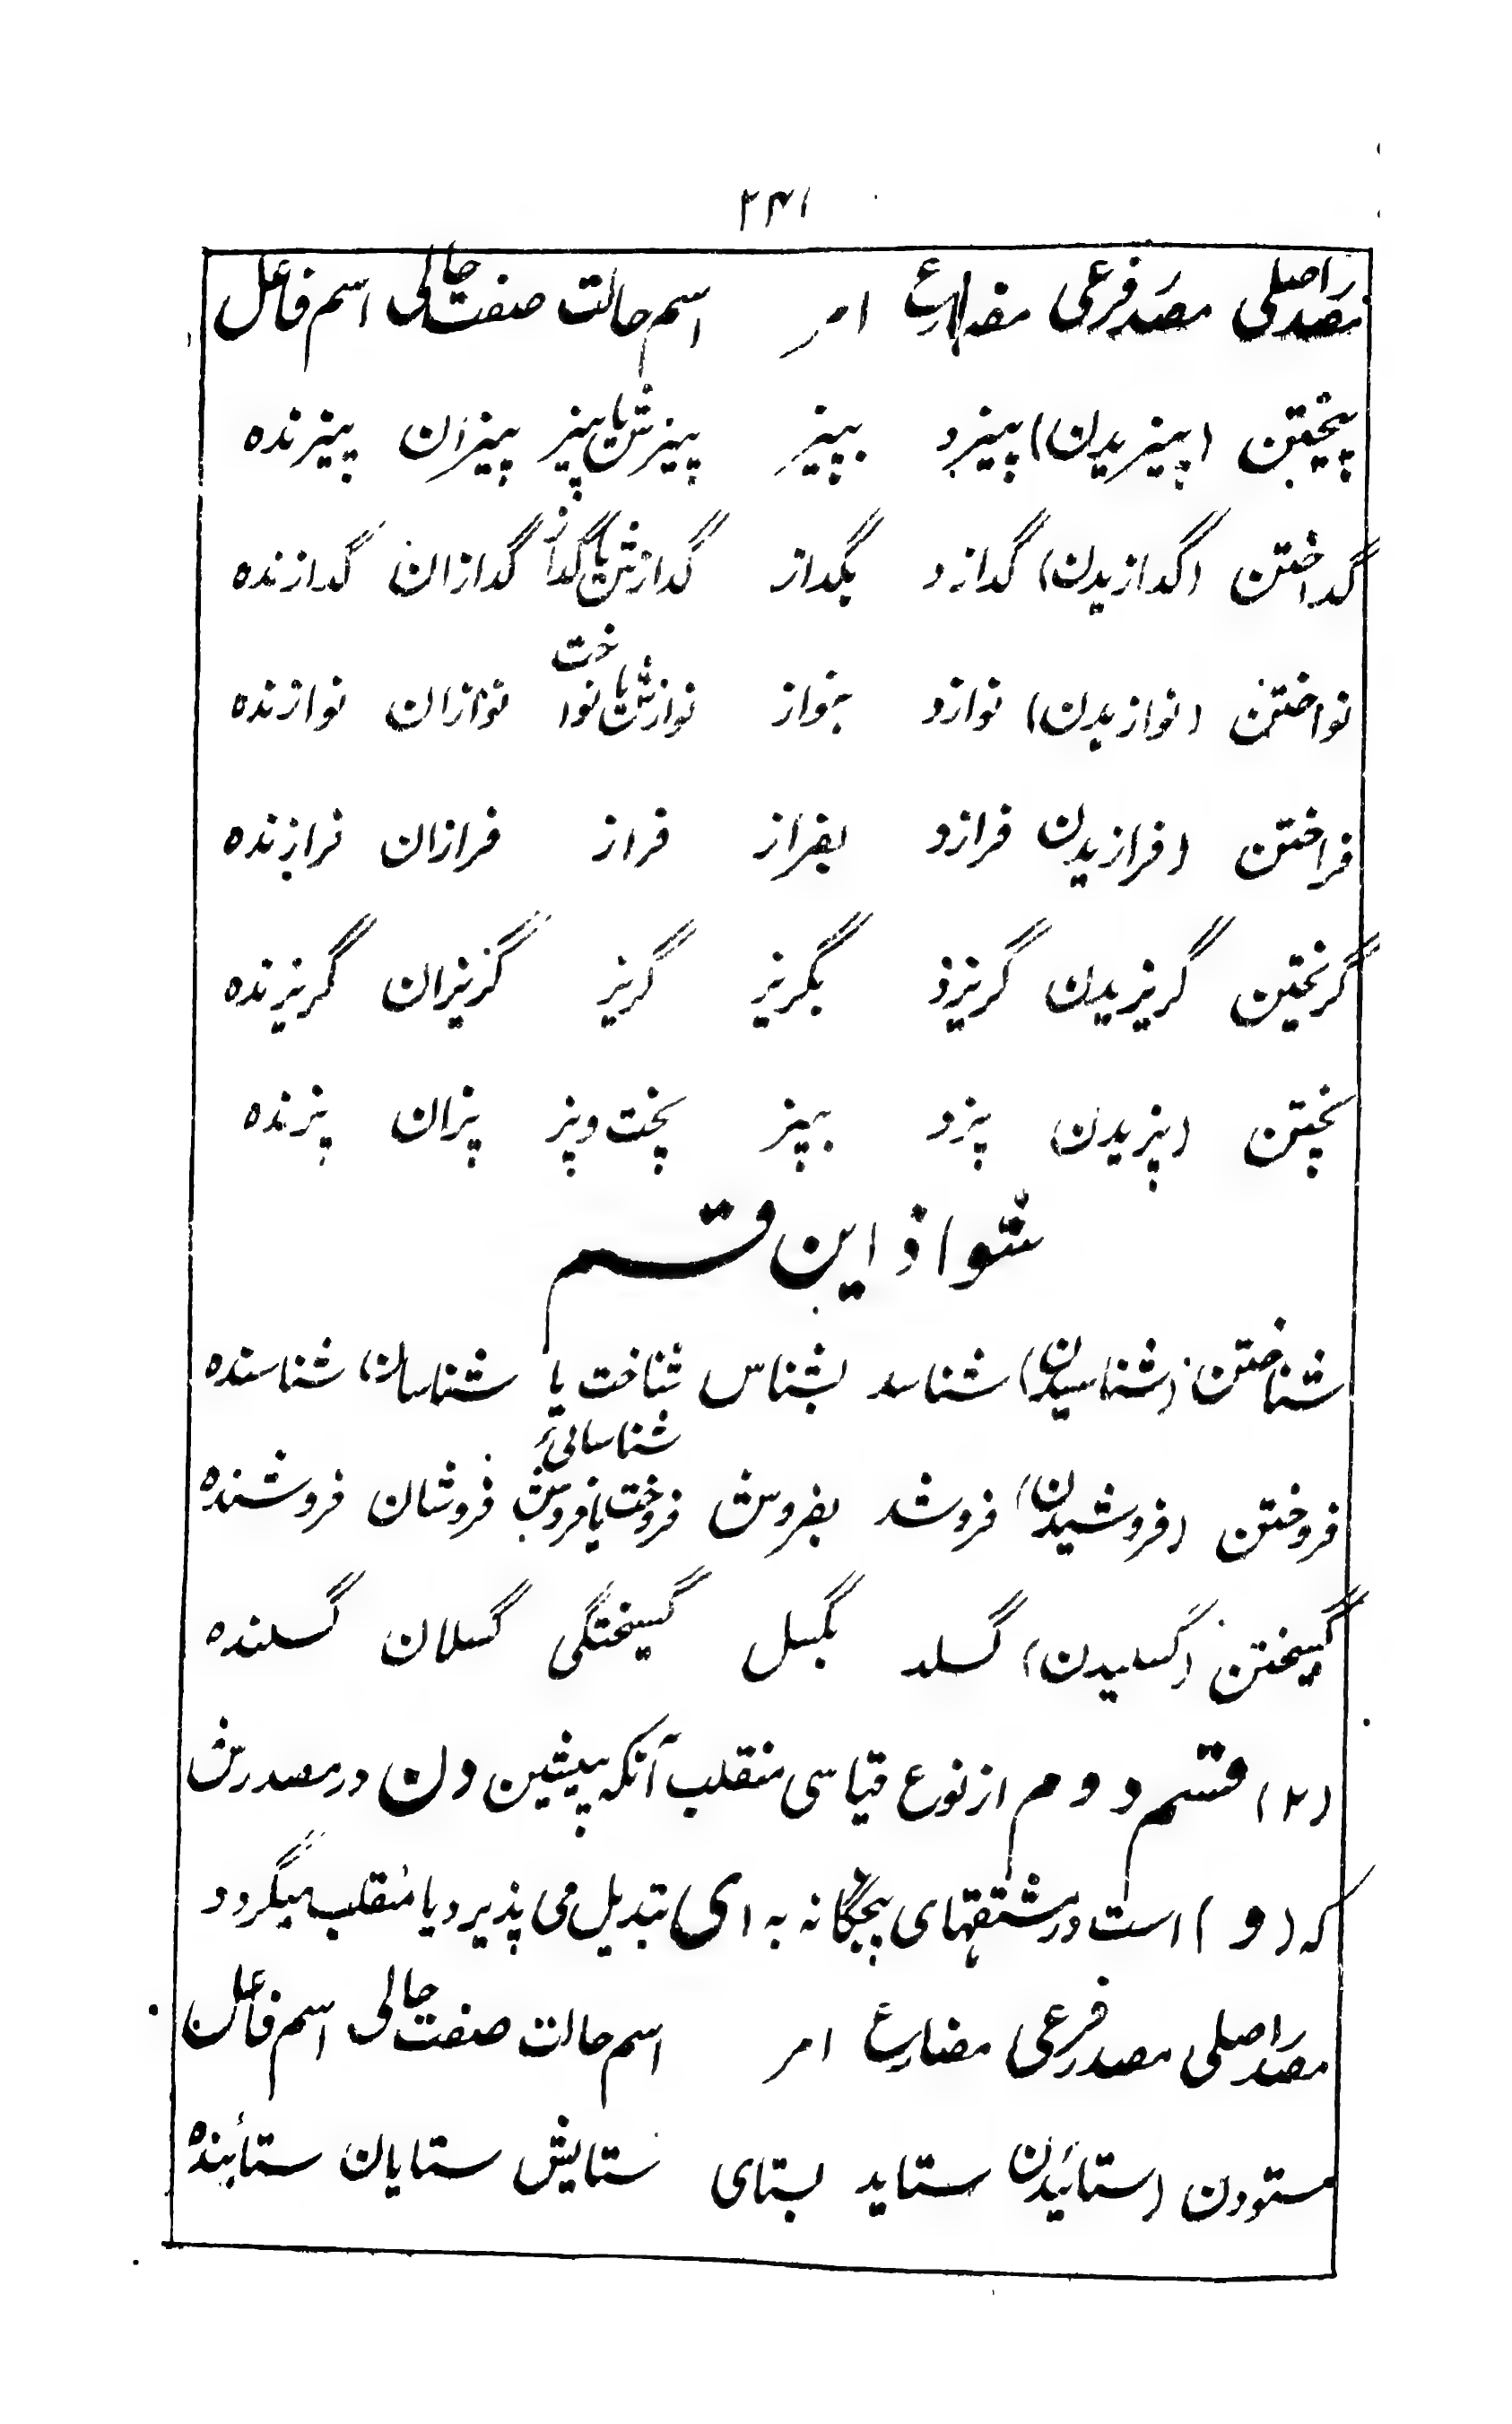 ۲۴۱
مصدر اصلی مصدر فرعی مضارع امر اسم حالت صفت حالی اسم فاعل
پیختن (پیزیدن) پیزد بپیز پیزش یا پیز پیزان پیزنده
گداختن (گدازیدن) گدازد بگداز گدازش یا گداز گدازان گدازنده
نواختن (نوازیدن) نوازد بنواز نوازش یا نواخت نوازان نوازنده
فراختن (فرازیدن فرازد بفراز فراز فرازان فرازنده
گریختن گریزیدن گریزد بگریز گریز گریزان گریزنده
پختن (پزیدن پزد بپز پخت و پز پزان پزنده
شواذ این قسم
شناختن (شناسیدن) شناسد بشناس شناخت یا شناسائی شناسان شناسنده
فروختن (فروشیدن) فروشد بفروش فروخت یا فروش فروشان فروشنده
گسیختن (گسلیدن) گسلد بگسل گسیختگی گسلان گسلنده
(۲) قسم دوم از نوع قیاسی منقلب آنکه پیشین دن در مصدرش
که (و) است در مشتقهای پنجگانه به ای تبدیل می پذیرد یا منقلب میگردد
مصدر اصلی مصدر فرعی مضارع امر اسم حالت صفت حالی اسم فاعل
ستودن (ستائیدن ستاید بستای ستایش ستایان ستاینده